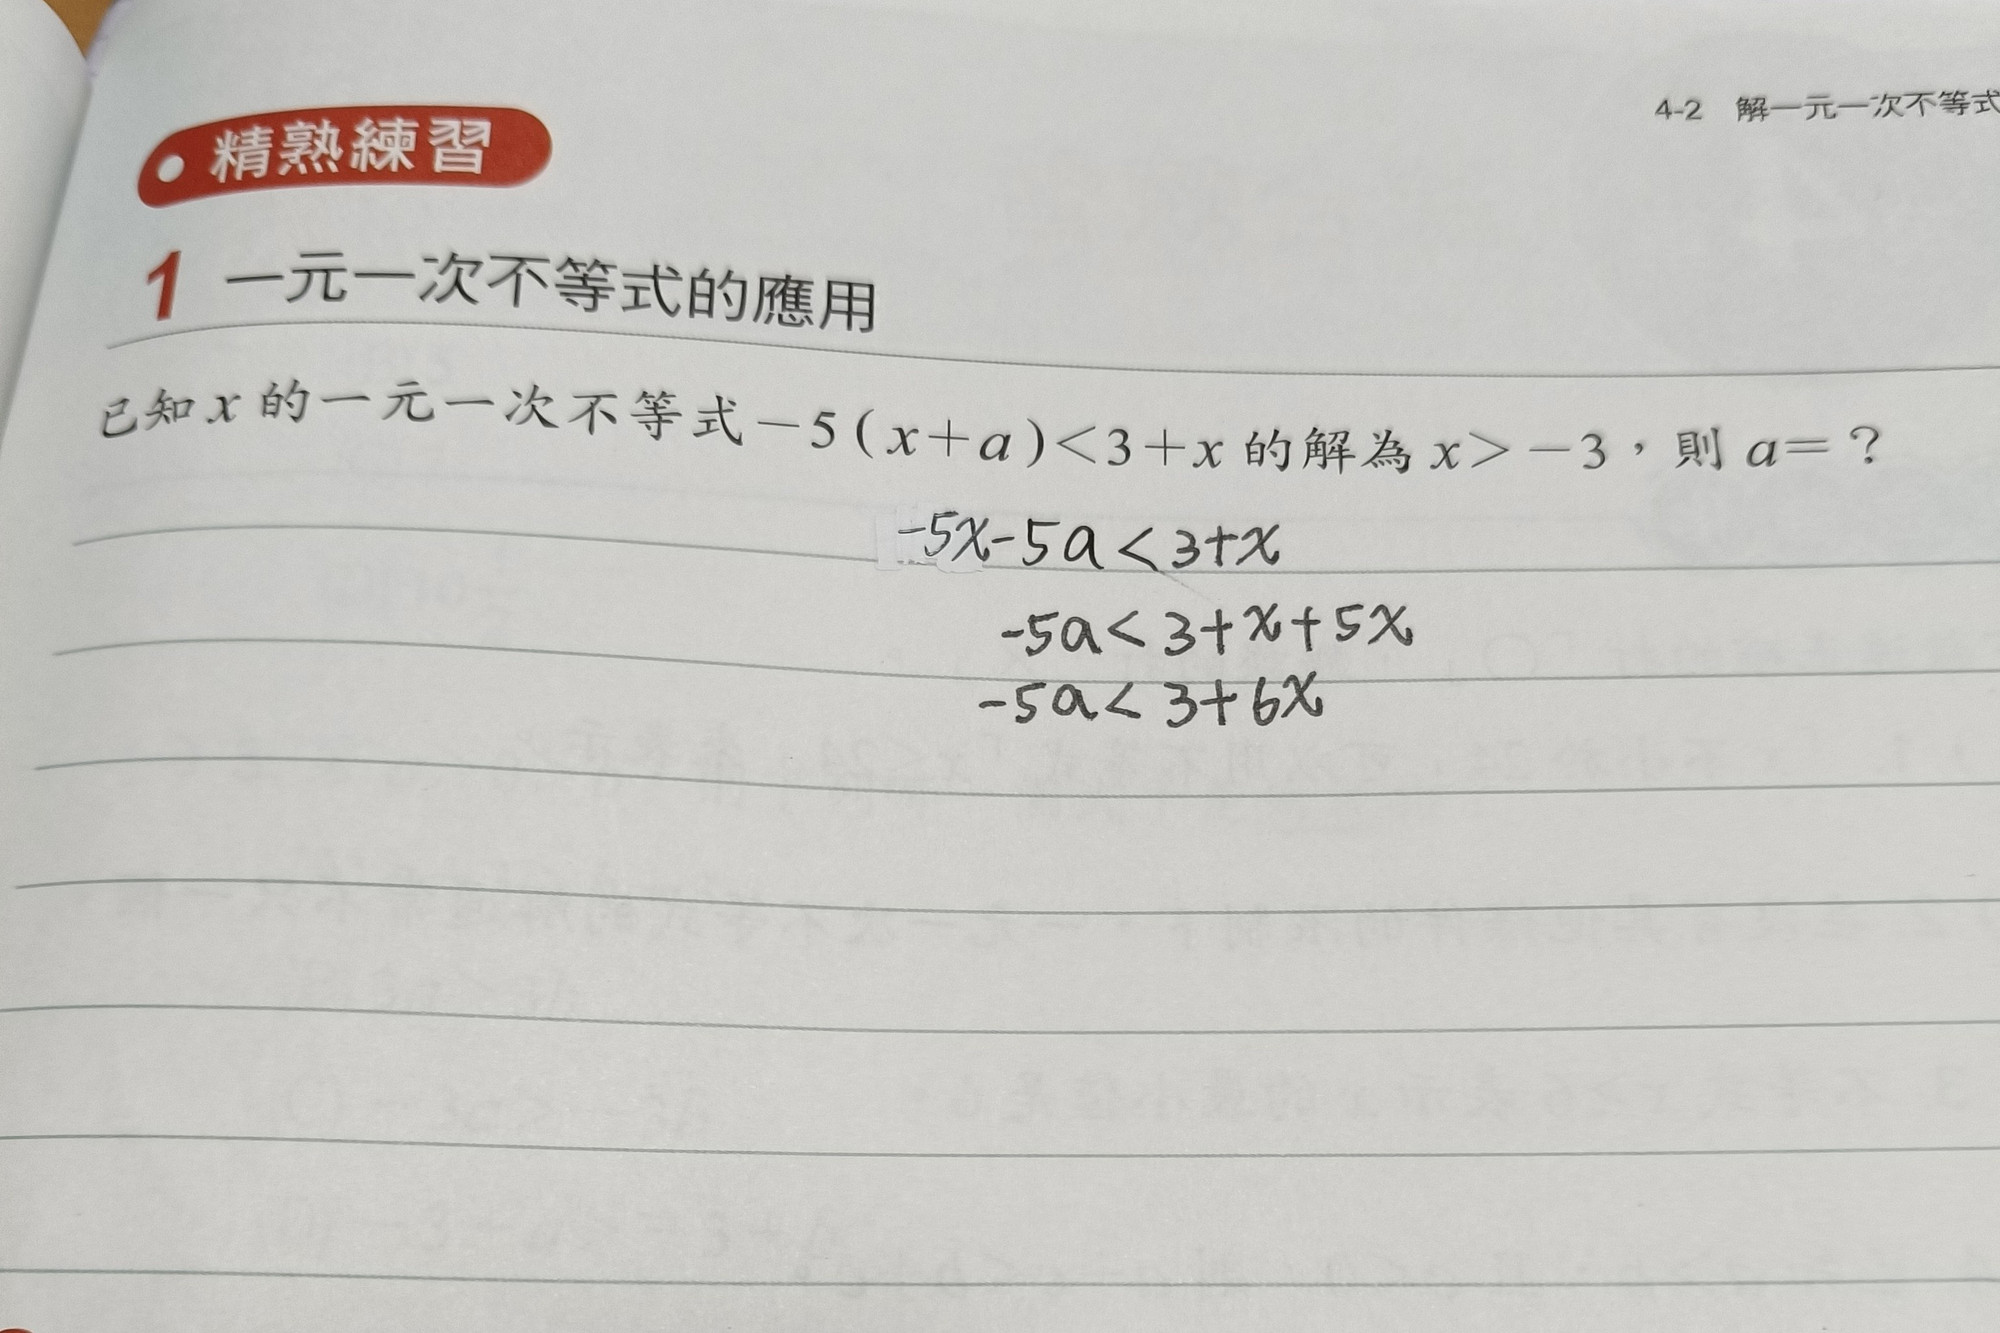 4-2 解一元一次不等式
精熟練習
1 一元一次不等式的應用
已知x的一元一次不等式−5(x+a)<3+x的解為x>−3,則a=?
-5x-5a<3+x
-5a<3+x+5x
-5a<3+6x